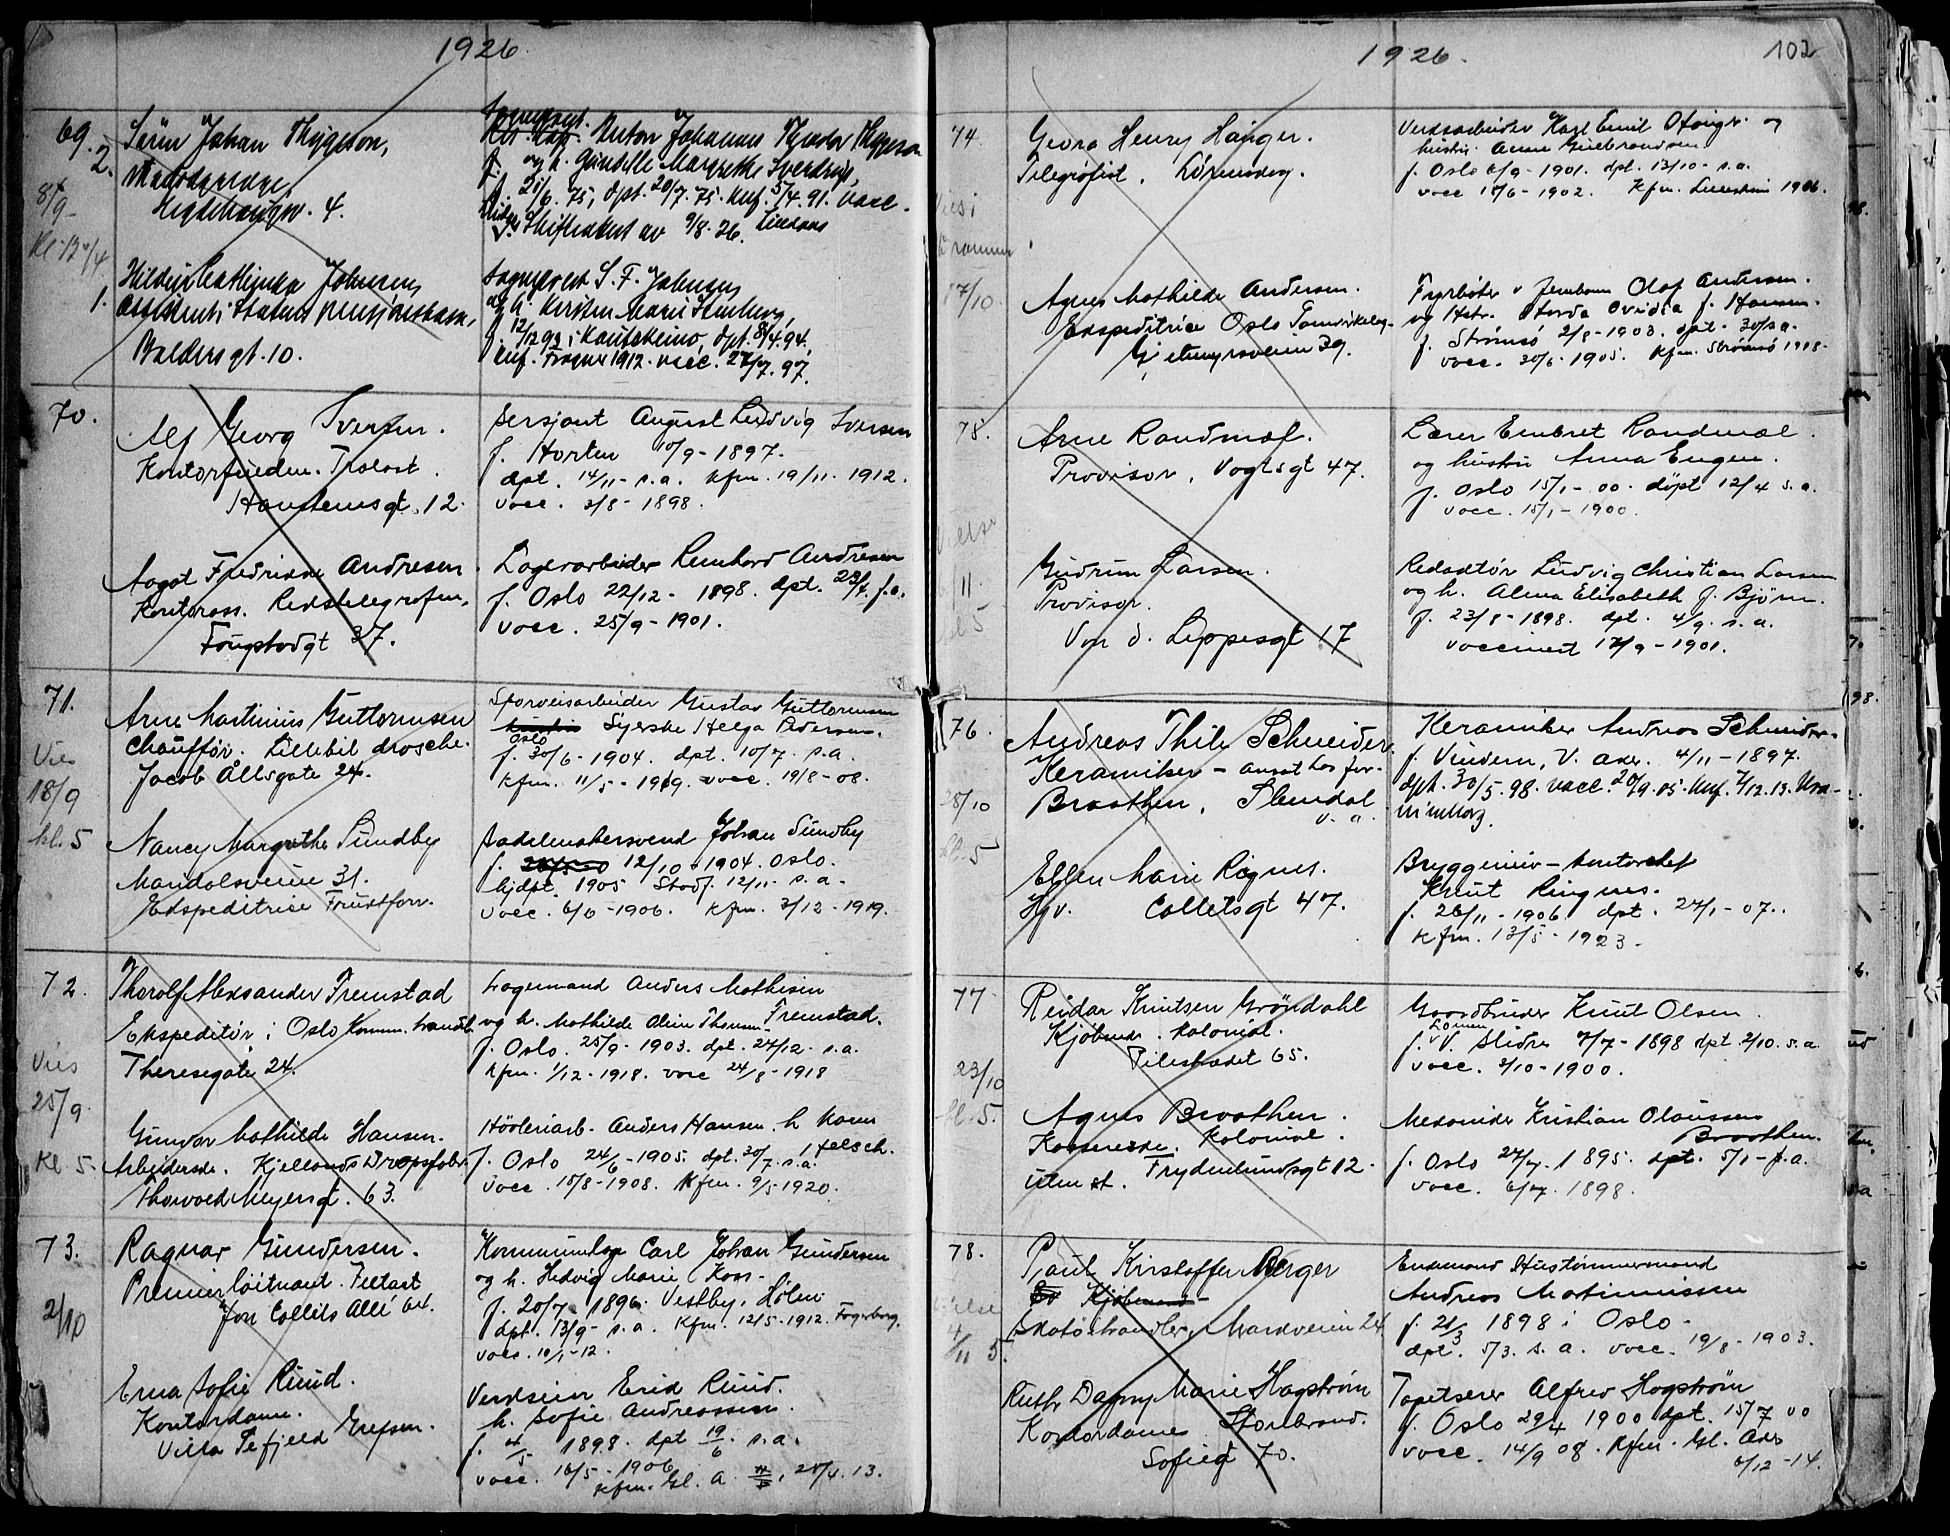 1926
69.
2.
Sörin Johan Thygeson,
8/9
Hegdehaugsv. 4.
Anton Johannes Theodor Thygeson
og h. Gunelle Margrethe Sverdrup,
f. 21/6. 75, dpt. 20/7. 75. Konf. 5/4. 91. vacc.
Skifteattest av 9/8. 26.
1.
Hildur Cathinka Johnsens
Assistent i Statens Pensjonskasse,
Waldersgt. 10.
Sogneprest S. F. Johnsens
og h. Kirsten Marie Stenberg,
f. 12/12 93 i Kautokeino, dpt. 8/4. 94.
Konf. Frogner 1912. vacc. 27/7. 97.
70.
Alf Georg Iversen.
Kontorfuldm. Tralast.
Hanstensgt. 12.
Sersjant August Ludvig Iversen
f. Horten 10/9-1897.
dpt. 14/11- s.a. kfm. 19/11-1912.
vacc. 3/8-1898.
Aagot Fredrikke Andresen.
Kontorass. Rikstelegrafen,
Fougstadgt 37.
Lagerarbeider Reinhard Andresen
f. Oslo 22/12-1898. dpt.
vacc. 25/9-1901.
71.
Vies
18/9
kl. 5
Arne Martinius Guttormsen
Chauffør. Lillebil drosche.
Jacob Ållsgate 24.
Sporveisarbeider Gustav Guttormsen
Syerske Helga Pedersen.
Oslo
f. 30/6-1904. dpt. 10/7. s.a.
kfm. 11/5-1919. vacc. 19/8-08.
Nancy Margrethe Sundby
Mandalsveien 31.
Ekspeditrise Frugtforr.
Sadelmakersvend Johan Sundby
f. 12/10-1904. Oslo.
hjdpt. 1905 Stadf. 12/11- s.a.
vacc. 6/6-1906. kfm. 3/12-1919.
72.
Vies
25/9.
Kl. 5.
Thorolf Aleksander Fremstad
Ekspeditør i Oslo Komm. vandl.
Theresegate 24.
Lagermand Anders Mathisen
Fremstad.
og h. Mathilde Oline Thomsen
f. Oslo. 25/9-1903. dpt. 27/12- s.a.
kfm. 1/12-1918. vacc 24/8-1918
Gunvor Mathilde Hansen.
Arbeiderske. Kjellands Dropsfabr.
Thorvald Meyersgt. 63.
Høvleriarb. Anders Hansen. h Karen
f. Oslo 24/6-1905. dpt. 30/7. s.a.
vacc. 15/8-1908. Kfm. 9/5-1920.
73.
2/10
Ragnar Gundersen.
Premierløitnant. Feltart
Jon Collets Allé 64.
Carl Johan Gundersen
og h. Hedvig Marie Koss.
f. 20/7. 1896. Vestby, Hölen
dpt. 13/9- s.a. Kfm. 12/5-1912. Fagerborg.
vacc. 10/1-12.
Erna Sofie Ruud.
Kontordame.
Villa Tefjeld Grefsen.
Verkseier Erik Ruud.
h. Sofie Andreassen.
1898. dpt 19/6. s.a.
vacc. 16/5-1906
kfm. Gl. A. 25/4. 13.
1926.
102
74.
17/10.
Georg Henry Hanger.
Telegrafist. Lörenvg.
Verksarbeider Karl Emil
hustru Anna Gulbrandsen
f. Oslo 6/9-1901. dpt. 13/10- s.a.
vacc 15/6-1902.
Agnes Mathilde Andersen.
Ekspeditrice Oslo
Gjetemyrsveien 39.
Fyrbøter v Jernbanen Olaf Andersen.
og Hstr. Hansen.
f. Strömsö 2/8-1903. dpt. 30/8 a.
vacc. 20/6-1905. Kfm. Strömsö 1918.
75.
Vielse
11
kl 5
Arne Randmæl.
Provisor, Vogtsgt 47.
Lærer Embret Randmæl.
og hustru Anna Engen.
f. Oslo 15/1-00. döpt 12/4 s.a.
vacc. 15/1-1900.
Gudrun Larsen.
Provisor.
Von d. Lippesgt 17
Redaktör Ludvig Christian Larsen
og h. Alma Elisabeth f. Bjørn.
f. 23/8-1898. dpt. 4/9. s.a.
vaccinert 12/9-1901.
76.
28/10
kl. 5
Andreas Thile Schneider.
Keramiker - ansat hos forr.
Braathen, Slemdal
V. a.
Keramiker Andreas Schneider.
f. Vinderen, V. Aker. 4/11-1897.
dpt. 30/5. 98. vacc. 20/9. 05. Konf. 7/12. 13. Uranienborg.
Ellen Marie Ringnes.
Hjv. Colletsgt 47.
Knut Ringnes.
f. 26/11-1906 dpt. 27/1-07.
kfm. 13/5-1923.
77
23/10
kl. 5.
Reidar Knutsen Gröndahl
Kjöbmd. Kolonial.
Pilestrædet 65.
Gaardbruker Knut Olsen.
Lomen
f. V. Slidre 7/7-1898 dpt. 2/10. s.a.
vacc. 3/10-1900.
Agnes Braathen.
Kassererske. Kolonial.
uten st. Frydenlundsgt 12.
Mekaniker Kristian Olaussen
Braathen.
f. Oslo 27/7. 1895. dpt. 5/1- f.a.
vacc. 6/7. 1898.
78.
Vielse
4/11 5.
Paul Kristoffer Berger
Kjöbmand
Skotöihandler, Markveien 24
Enkemand Hustømmermand
Andreas Martinussen
f. 21/3 1898 i Oslo.
dpt. 5/3. s.a. vacc. 19/8-1903.
Ruth Dagny Marie Hagström
Kontordame Storebrand.
Sofiegt 70.
Tapetserer Alfred Hagström
f. Oslo 29/4 1900 dpt. 15/7 00
vacc. 14/9 08. Kfm. Gl. Aker
6/12-14.